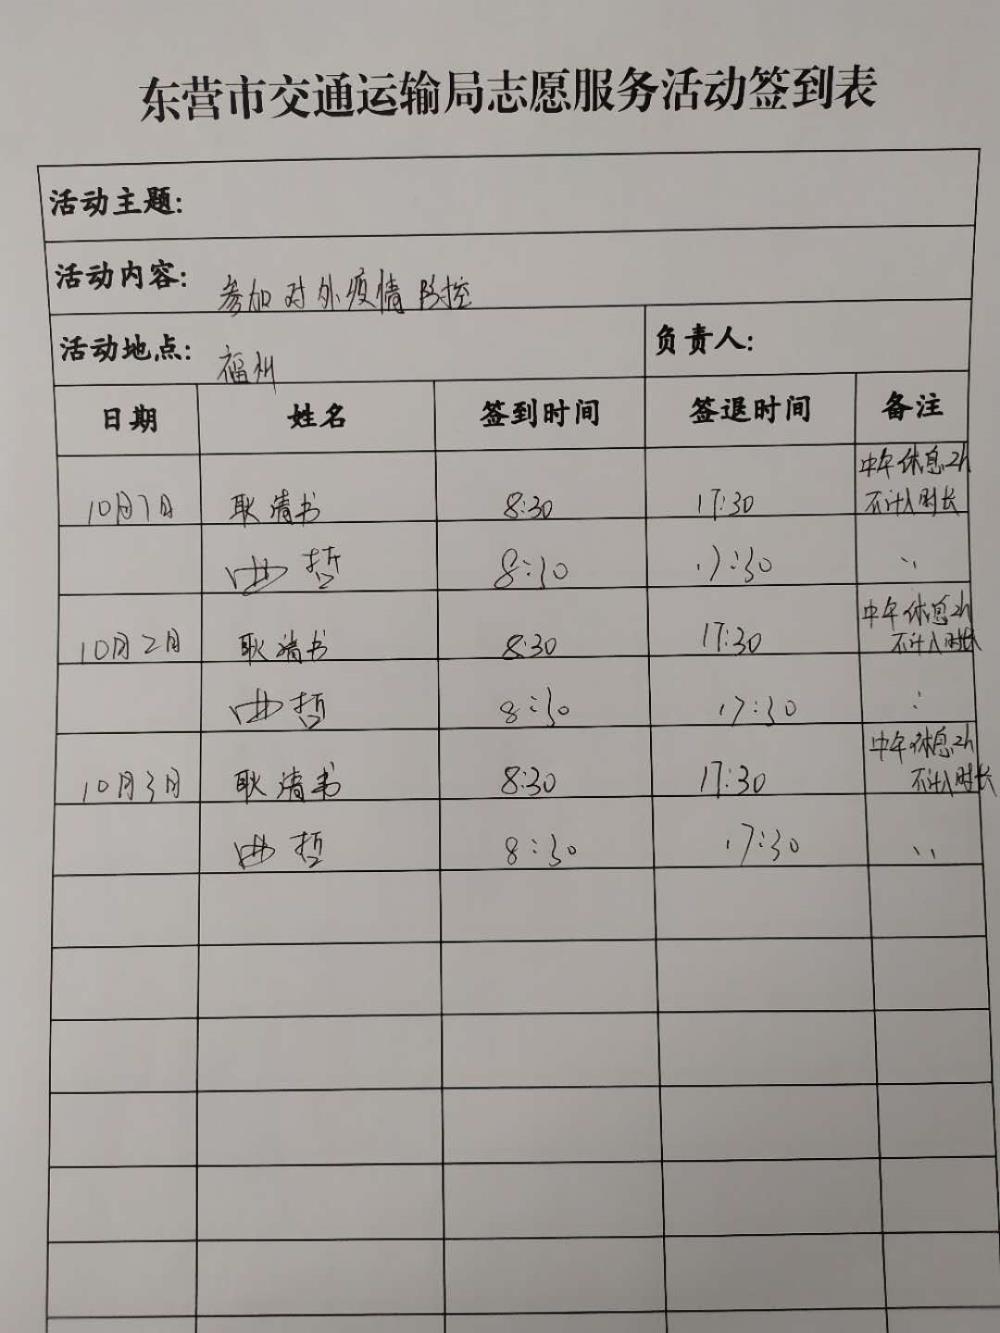 东营市交通运输局志愿服务活动签到表
活动主题:
活动内容: 参加对外疫情防控
活动地点: 福州 负责人:
日期 姓名 签到时间 签退时间 备注
10月1日 耿清书 8:30 17:30 中午休息2h
不计入时长
曲哲 8:30 17:30 〃
10月2日 耿清书 8:30 17:30 中午休息2h
不计入时长
曲哲 8:30 17:30 〃
10月3日 耿清书 8:30 17:30 中午休息2h
不计入时长
曲哲 8:30 17:30 〃